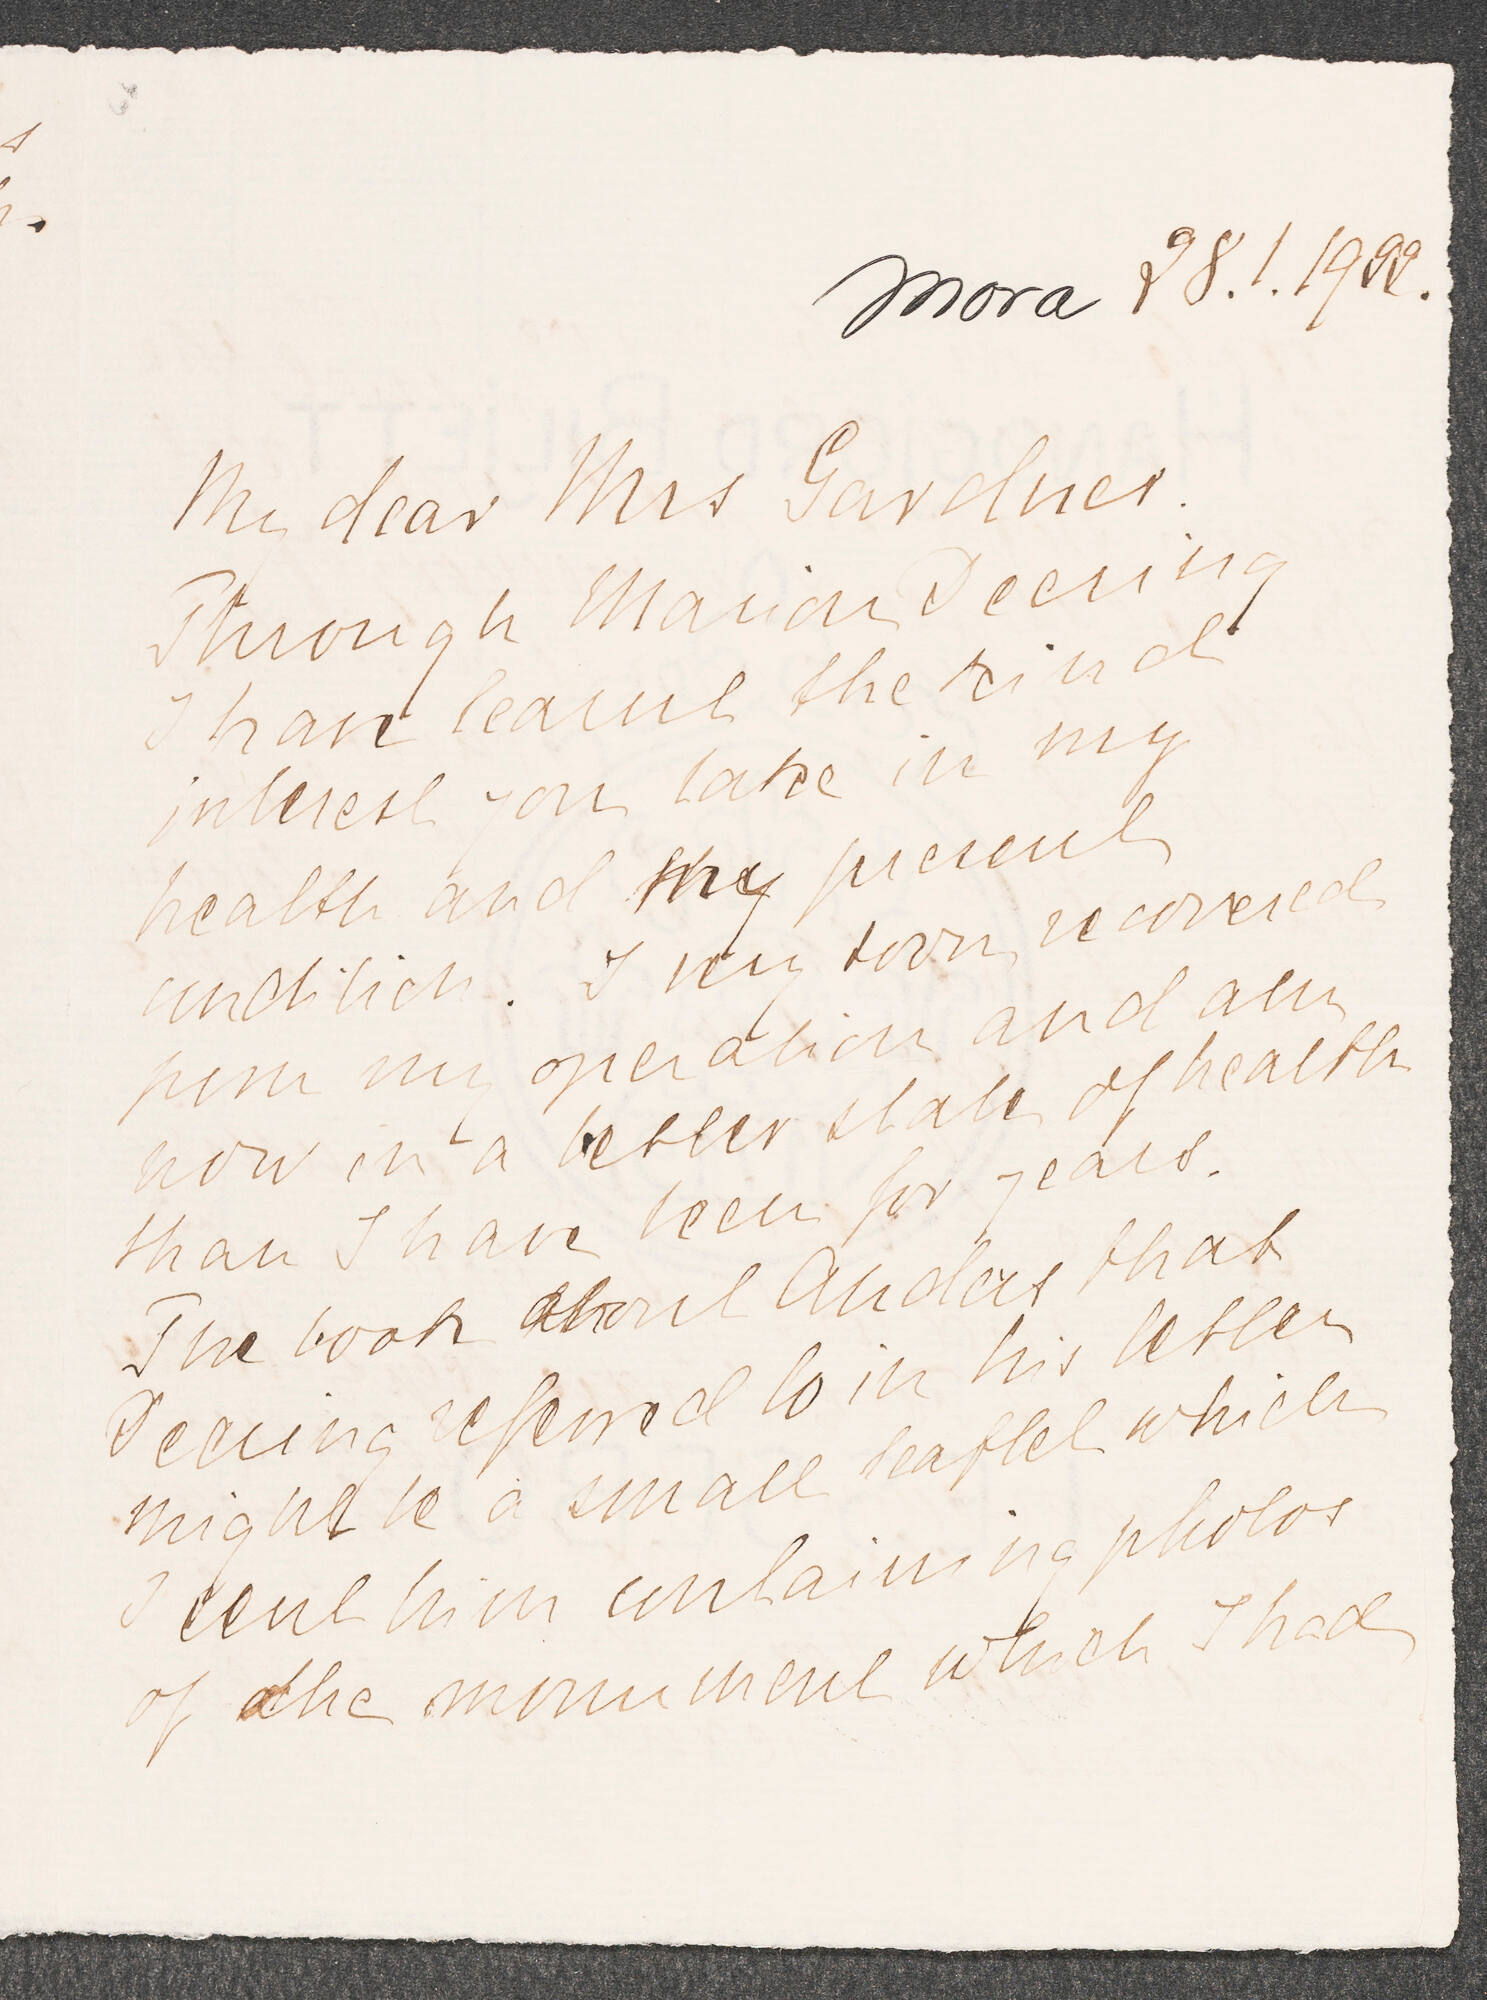 Mora 28.1.1922.
My dear Mrs Gardner.
Through Marion Deering
I have learnt the kind
interest you take in my
health and my present
condition. I very soon recovered
from my operation and am
now in a better state of health
than I have been for years.
The book about Anders that
Deering referred to in his letter
might be a small leaflet which
I sent him containing photos
of the monument which I had